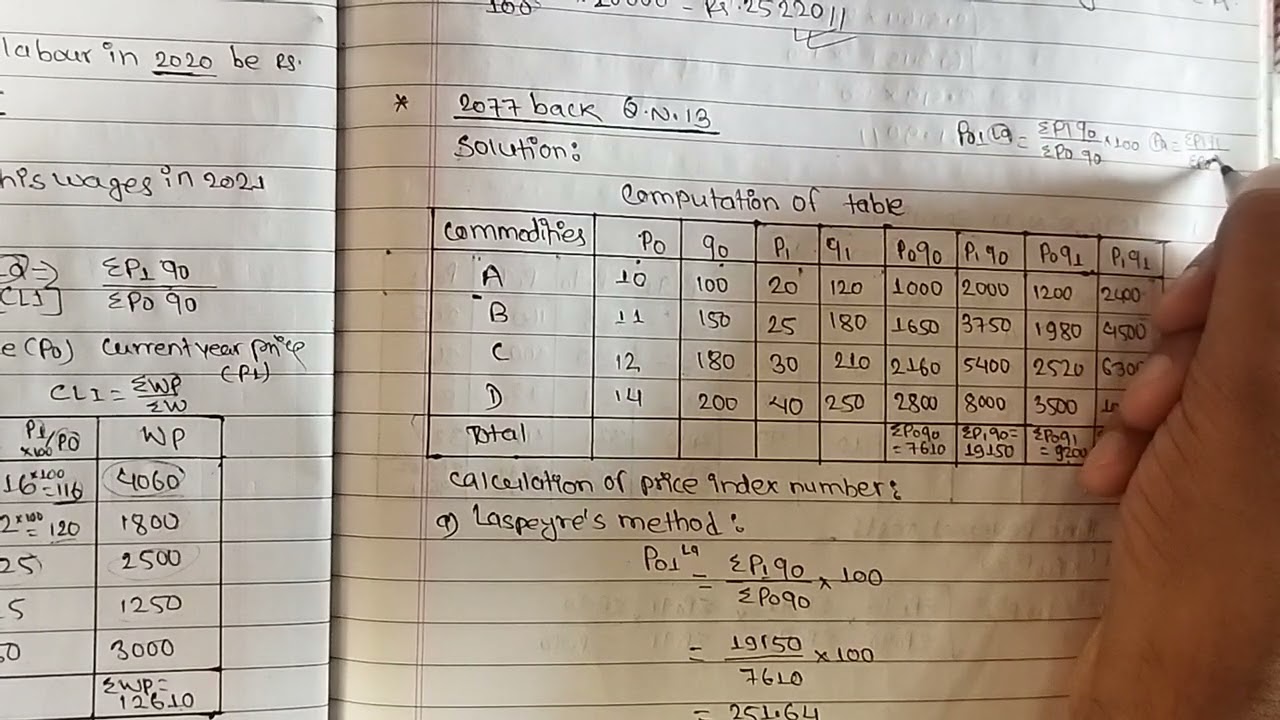 labour in 2020 be Rs.
his wages in 2021
ΣP1 q0
ΣP0 q0
CLI]
e (P0) current year price
(P1)
CLI = ΣWP
ΣW
P1/P0 ×100
WP
16×100 = 116
4060
2×100 = 120
1800
25
2500
5
1250
50
3000
ΣWP =
12610
100 20000 = Rs. 25220 //
* 2077 back Q.N.13
Solution:
P01 La = ΣP1 q0 / ΣP0 q0 × 100
Computation of table
commodities P0 q0 P1 q1 P0q0 P1q0 P0q1 P1q1
A 10 100 20 120 1000 2000 1200 2400
B 11 150 25 180 1650 3750 1980 4500
C 12 180 30 210 2160 5400 2520 6300
D 14 200 40 250 2800 8000 3500
Total ΣP0q0 = 7610 ΣP1q0 = 19150 ΣP0q1 = 9200
calculation of price index number:
a) Laspeyre's method:
P01 La = ΣP1q0 / ΣP0q0 × 100
= 19150 / 7610 × 100
= 251.64